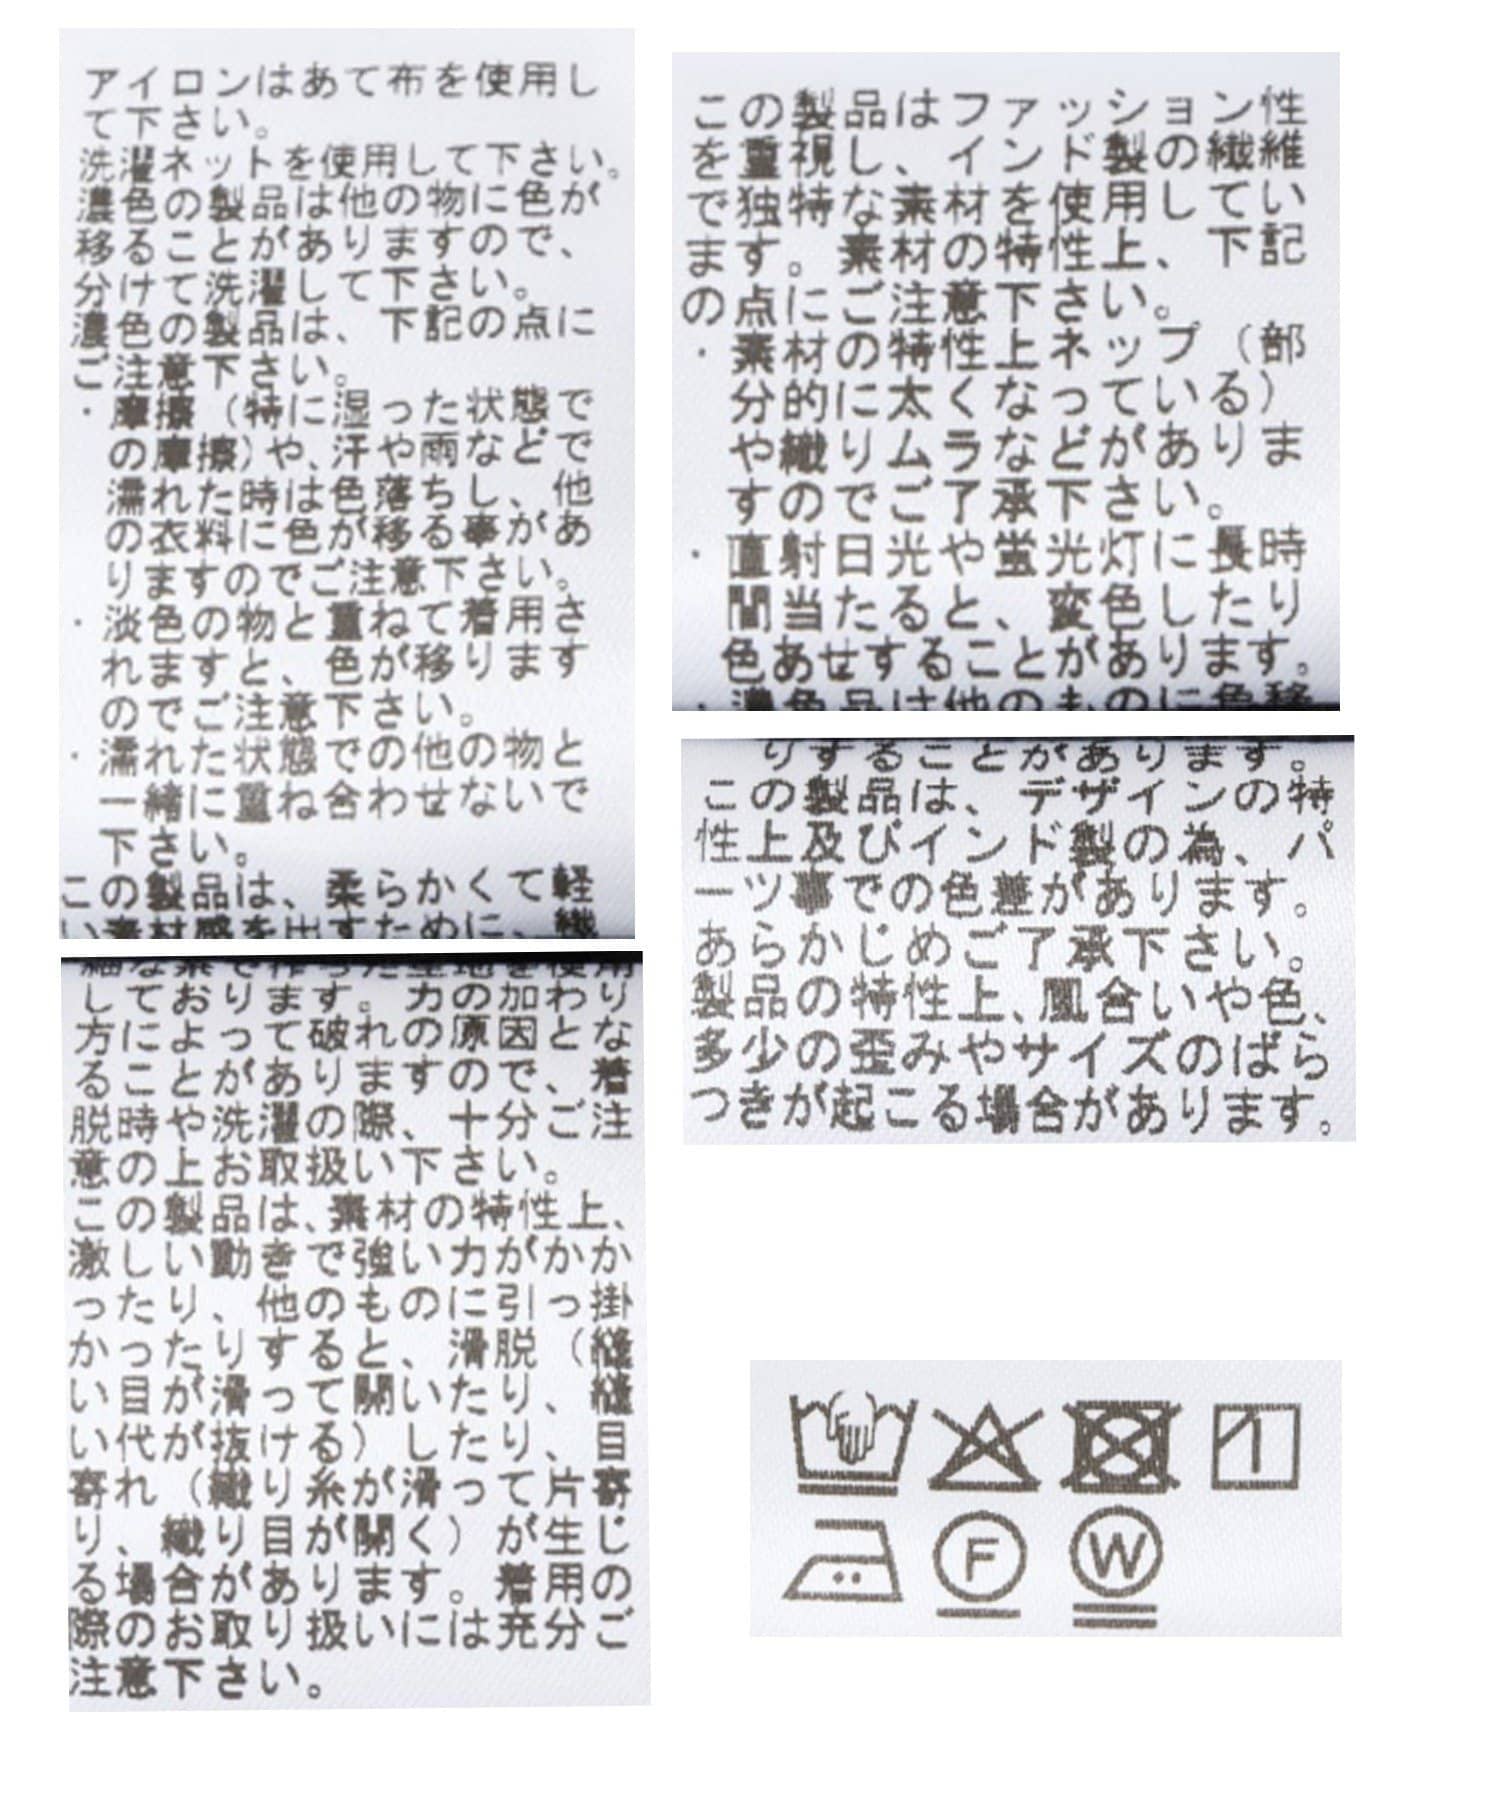 アイロンはあて布を使用し
て下さい。
洗濯ネットを使用して下さい。
濃色の製品は他の物に色が
移ることがありますので、
分けて洗濯して下さい。
濃色の製品は、下記の点に
ご注意下さい。
・摩擦（特に湿った状態で
の摩擦）や、汗や雨などで
濡れた時は色落ちし、他
の衣料に色が移る事があ
りますのでご注意下さい。
・淡色の物と重ねて着用さ
れますと、色が移ります
のでご注意下さい。
・濡れた状態での他の物と
一緒に重ね合わせないで
下さい。
この製品は、柔らかくて軽
い素材感を出すために、繊
細な糸で作った生地を使用
しております。力の加わり
方によって破れの原因とな
ることがありますので、着
脱時や洗濯の際、十分ご注
意の上お取扱い下さい。
この製品は、素材の特性上、
激しい動きで強い力がかか
ったり、他のものに引っ掛
かったりすると、滑脱（縫
い目が滑って開いたり、縫
い代が抜ける）したり、目
寄れ（織り糸が滑って片寄
り、織り目が開く）が生じ
る場合があります。着用の
際のお取り扱いには充分ご
注意下さい。
この製品はファッション性
を重視し、インド製の繊維
で独特な素材を使用してい
ます。素材の特性上、下記
の点にご注意下さい。
・素材の特性上ネップ（部
分的に太くなっている）
や織りムラなどがありま
すのでご了承下さい。
・直射日光や蛍光灯に長時
間当たると、変色したり
色あせすることがあります。
・濃色品は他のものに色移
りすることがあります。
この製品は、デザインの特
性上及びインド製の為、パ
ーツ事での色差があります。
あらかじめご了承下さい。
製品の特性上、風合いや色、
多少の歪みやサイズのばら
つきが起こる場合があります。
F W